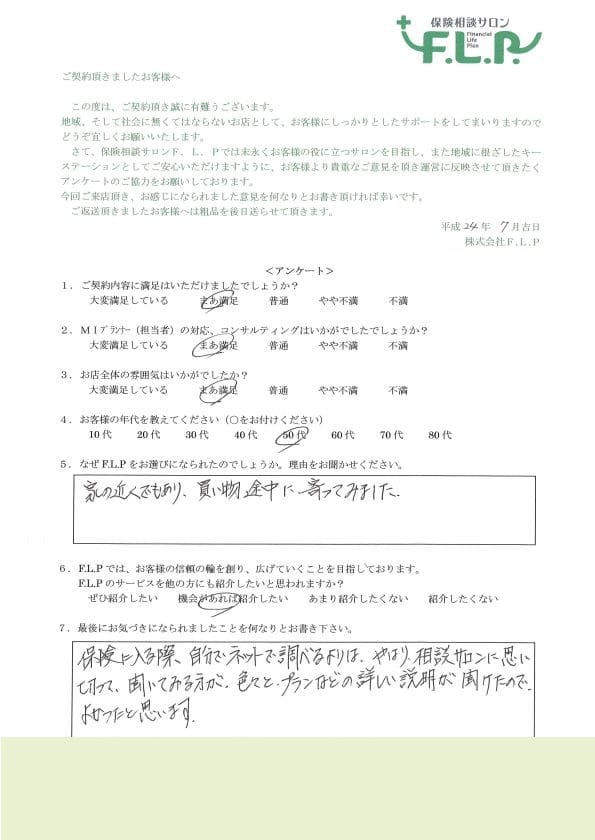 保険相談サロン
F.L.P.
Financial
Life
Plan
ご契約頂きましたお客様へ
この度は、ご契約頂き誠に有難うございます。
地域、そして社会に無くてはならないお店として、お客様にしっかりとしたサポートをしてまいりますので
どうぞ宜しくお願いいたします。
さて、保険相談サロンF．L．Pでは末永くお客様の役に立つサロンを目指し、また地域に根ざしたキー
ステーションとしてご安心いただけますように、お客様より貴重なご意見を頂き運営に反映させて頂きたく
アンケートのご協力をお願いしております。
今回ご来店頂き、お感じになられました意見を何なりとお書き頂ければ幸いです。
ご返送頂きましたお客様へは粗品を後日送らせて頂きます。
平成 24 年 7 月吉日
株式会社F.L.P
＜アンケート＞
1．ご契約内容に満足はいただけましたでしょうか？
大変満足している まあ満足 普通 やや不満 不満
2．MIプランナー（担当者）の対応、コンサルティングはいかがでしたでしょうか？
大変満足している まあ満足 普通 やや不満 不満
3．お店全体の雰囲気はいかがでしたか？
大変満足している まあ満足 普通 やや不満 不満
4．お客様の年代を教えてください（○をお付けください）
10代 20代 30代 40代 50代 60代 70代 80代
5．なぜF.L.Pをお選びになられたのでしょうか。理由をお聞かせください。
家の近くでもあり、買い物途中に寄ってみました。
6．F.L.Pでは、お客様の信頼の輪を創り、広げていくことを目指しております。
F.L.Pのサービスを他の方にも紹介したいと思われますか？
ぜひ紹介したい 機会があれば紹介したい あまり紹介したくない 紹介したくない
7．最後にお気づきになられましたことを何なりとお書き下さい。
保険に入る際、自分でネットで調べるよりは、やはり、相談サロンに思い
切って、聞いてみる方が、色々と、プランなどの詳しい説明が聞けたので、
よかったと思います。